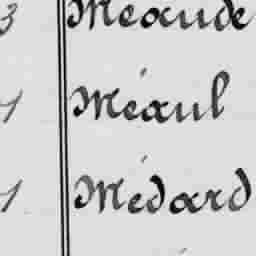 3 Méaude
1 Méaul
1 Médard